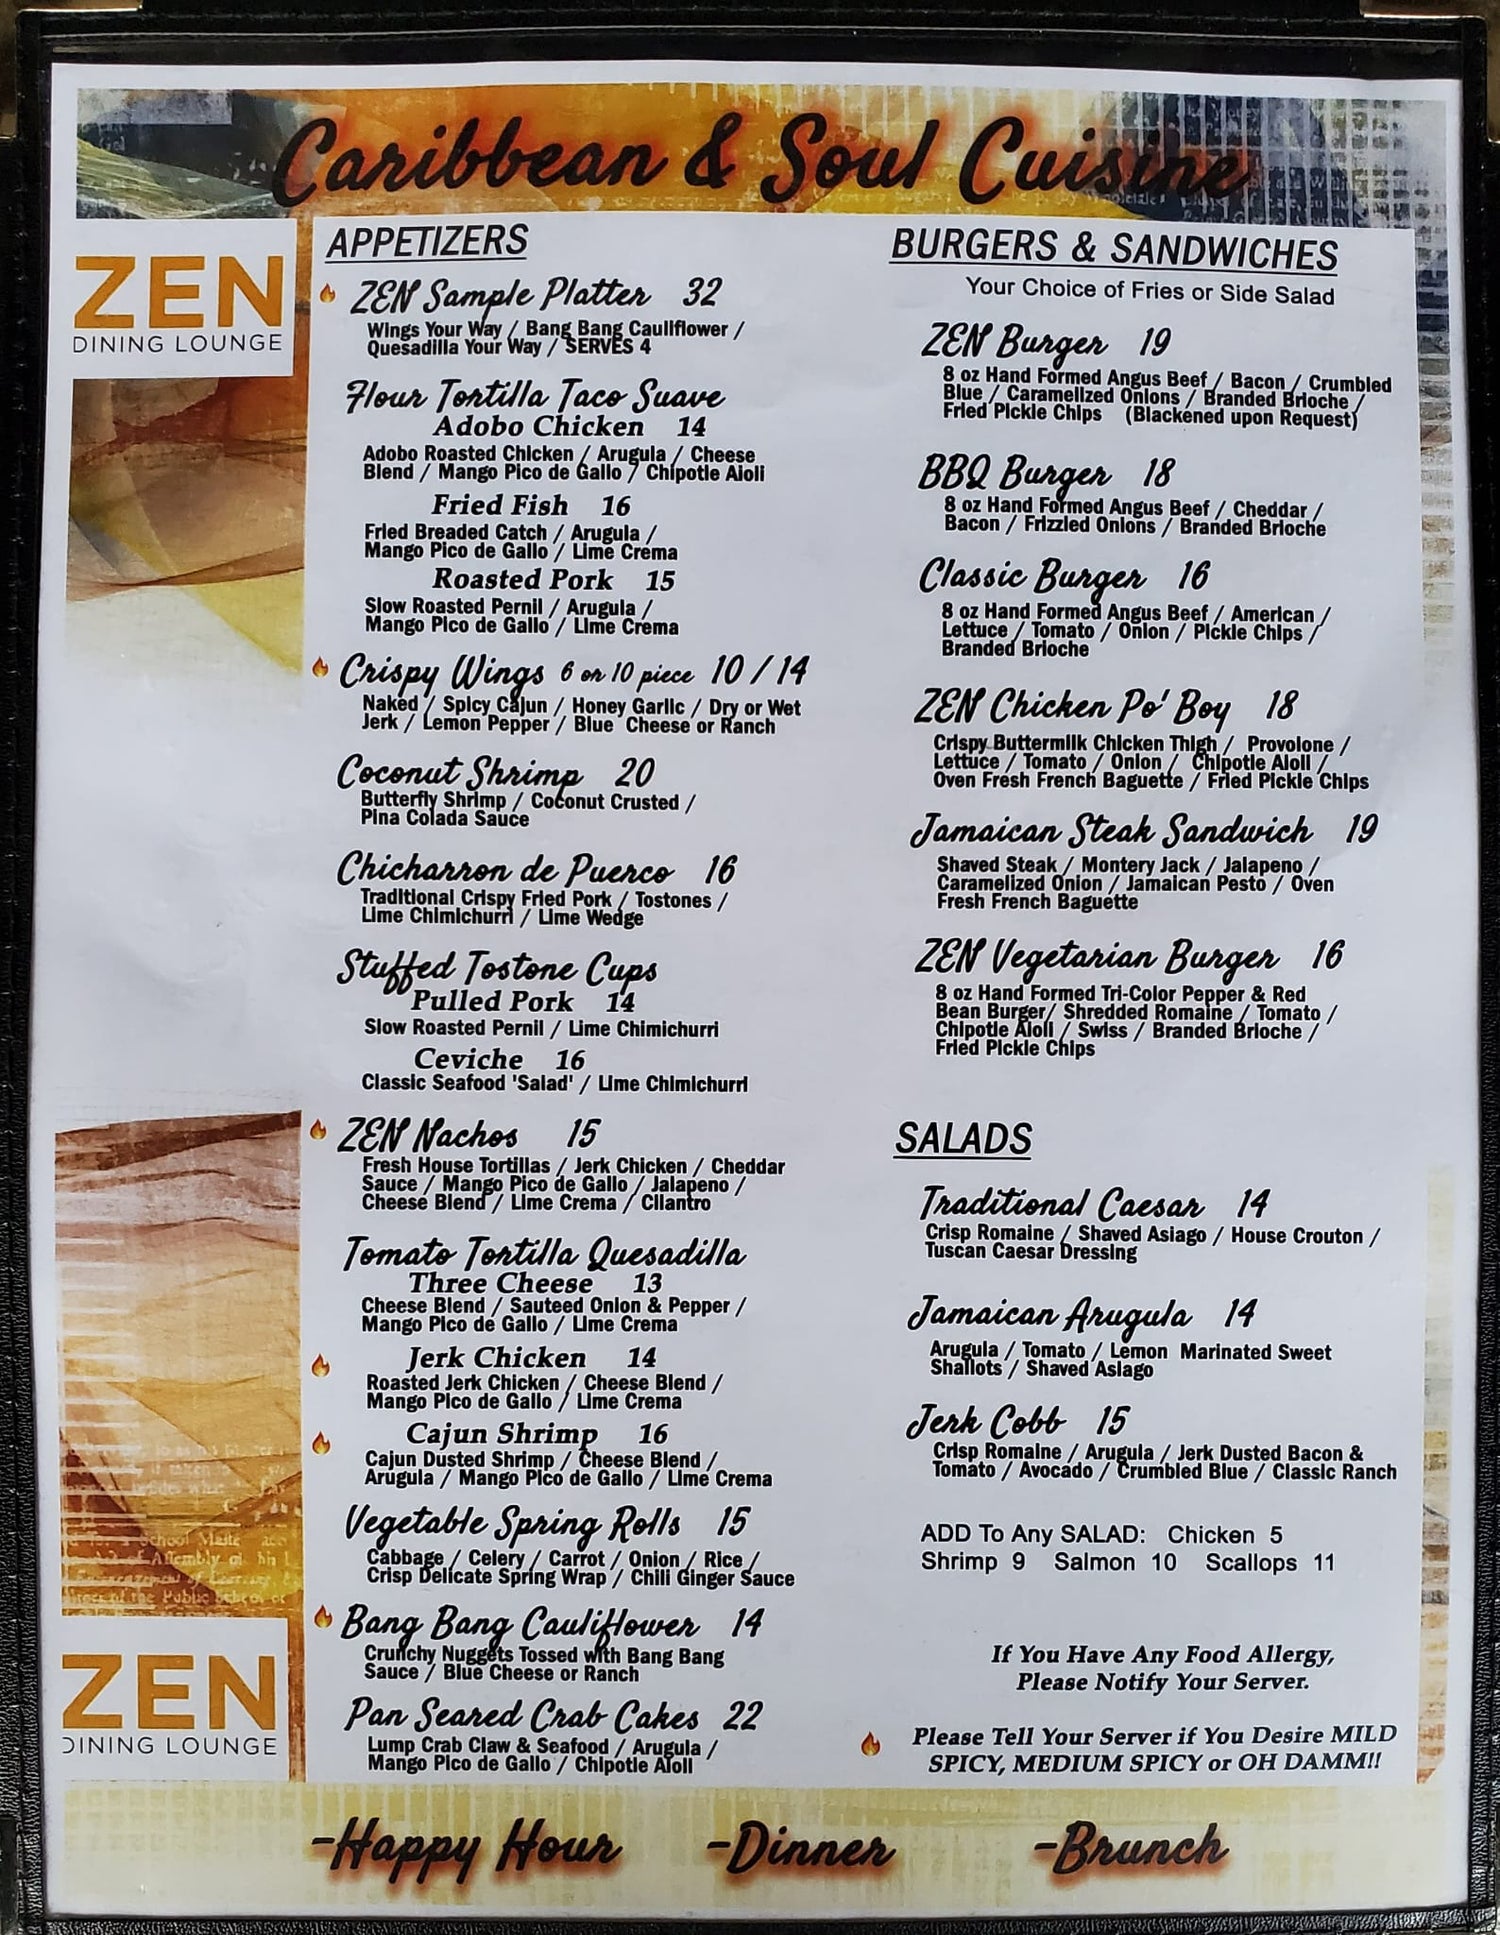 Caribbean & Soul Cuisine
ZEN
DINING LOUNGE
APPETIZERS
ZEN Sample Platter 32
Wings Your Way / Bang Bang Cauliflower /
Quesadilla Your Way / SERVES 4
Flour Tortilla Taco Suave
Adobo Chicken 14
Adobo Roasted Chicken / Arugula / Cheese
Blend / Mango Pico de Gallo / Chipotle Aioli
Fried Fish 16
Fried Breaded Catch / Arugula /
Mango Pico de Gallo / Lime Crema
Roasted Pork 15
Slow Roasted Pernil / Arugula /
Mango Pico de Gallo / Lime Crema
Crispy Wings 6 or 10 piece 10 / 14
Naked / Spicy Cajun / Honey Garlic / Dry or Wet
Jerk / Lemon Pepper / Blue Cheese or Ranch
Coconut Shrimp 20
Butterfly Shrimp / Coconut Crusted /
Pina Colada Sauce
Chicharron de Puerco 16
Traditional Crispy Fried Pork / Tostones /
Lime Chimichurri / Lime Wedge
Stuffed Tostone Cups
Pulled Pork 14
Slow Roasted Pernil / Lime Chimichurri
Ceviche 16
Classic Seafood 'Salad' / Lime Chimichurri
ZEN Nachos 15
Fresh House Tortillas / Jerk Chicken / Cheddar
Sauce / Mango Pico de Gallo / Jalapeno /
Cheese Blend / Lime Crema / Cilantro
Tomato Tortilla Quesadilla
Three Cheese 13
Cheese Blend / Sauteed Onion & Pepper /
Mango Pico de Gallo / Lime Crema
Jerk Chicken 14
Roasted Jerk Chicken / Cheese Blend /
Mango Pico de Gallo / Lime Crema
Cajun Shrimp 16
Cajun Dusted Shrimp / Cheese Blend /
Arugula / Mango Pico de Gallo / Lime Crema
Vegetable Spring Rolls 15
Cabbage / Celery / Carrot / Onion / Rice /
Crisp Delicate Spring Wrap / Chili Ginger Sauce
Bang Bang Cauliflower 14
Crunchy Nuggets Tossed with Bang Bang
Sauce / Blue Cheese or Ranch
Pan Seared Crab Cakes 22
Lump Crab Claw & Seafood / Arugula /
Mango Pico de Gallo / Chipotle Aioli
BURGERS & SANDWICHES
Your Choice of Fries or Side Salad
ZEN Burger 19
8 oz Hand Formed Angus Beef / Bacon / Crumbled
Blue / Caramelized Onions / Branded Brioche /
Fried Pickle Chips (Blackened upon Request)
BBQ Burger 18
8 oz Hand Formed Angus Beef / Cheddar /
Bacon / Frizzled Onions / Branded Brioche
Classic Burger 16
8 oz Hand Formed Angus Beef / American /
Lettuce / Tomato / Onion / Pickle Chips /
Branded Brioche
ZEN Chicken Po' Boy 18
Crispy Buttermilk Chicken Thigh / Provolone /
Lettuce / Tomato / Onion / Chipotle Aioli /
Oven Fresh French Baguette / Fried Pickle Chips
Jamaican Steak Sandwich 19
Shaved Steak / Montery Jack / Jalapeno /
Caramelized Onion / Jamaican Pesto / Oven
Fresh French Baguette
ZEN Vegetarian Burger 16
8 oz Hand Formed Tri-Color Pepper & Red
Bean Burger/ Shredded Romaine / Tomato /
Chipotle Aioli / Swiss / Branded Brioche /
Fried Pickle Chips
SALADS
Traditional Caesar 14
Crisp Romaine / Shaved Asiago / House Crouton /
Tuscan Caesar Dressing
Jamaican Arugula 14
Arugula / Tomato / Lemon Marinated Sweet
Shallots / Shaved Asiago
Jerk Cobb 15
Crisp Romaine / Arugula / Jerk Dusted Bacon &
Tomato / Avocado / Crumbled Blue / Classic Ranch
ADD To Any SALAD: Chicken 5
Shrimp 9 Salmon 10 Scallops 11
If You Have Any Food Allergy,
Please Notify Your Server.
Please Tell Your Server if You Desire MILD
SPICY, MEDIUM SPICY or OH DAMM!!
ZEN
DINING LOUNGE
-Happy Hour -Dinner -Brunch